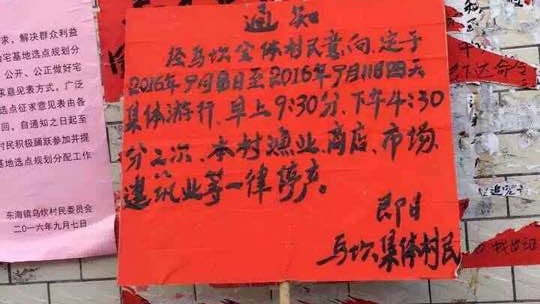 求、解决群众利益
宅基地选点规划分
公开、公正做好宅
求意见表方式，广泛
选点征求意见表由各
回。自通知之日起至
村民积极踊跃参加并提
基地选点规划分配工作
东海镇乌坎村民委员会
二〇一六年九月七日
通知
经乌坎全体村民意向，定于
2016年9月8日至2016年9月11日四天
集体游行，早上9:30分，下午4:30
分二次，本村渔业、商店、市场、
建筑业等一律停产。
即日
乌坎集体村民
下达命令